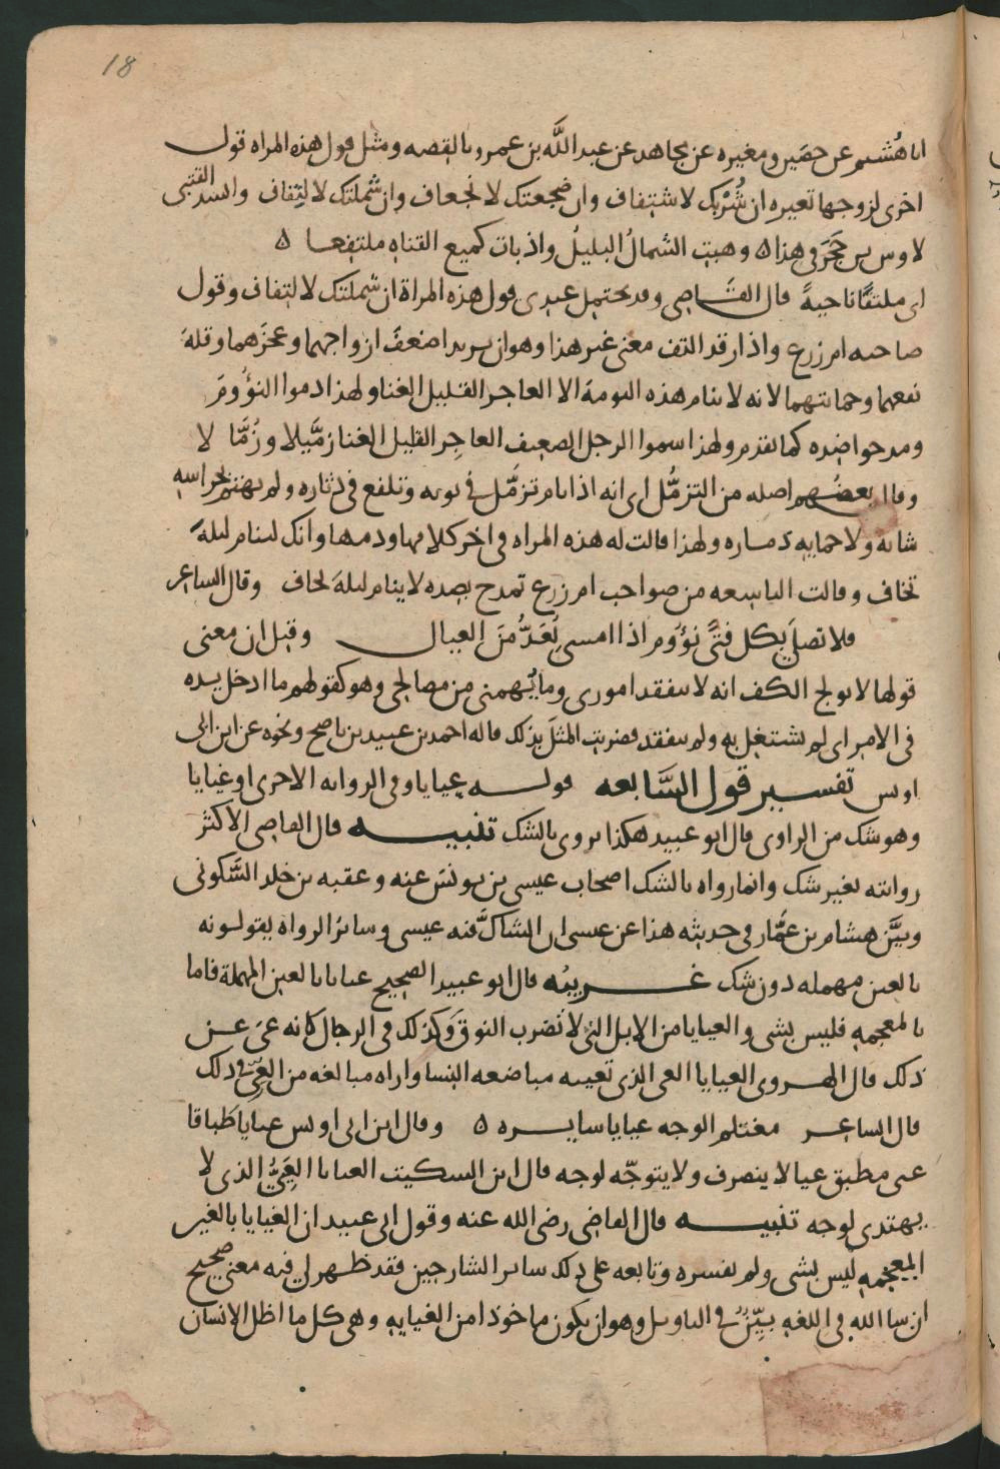 18
انا هُشيم عن حصَين ومغيره عن مجاهد عن عبد اللَّه بن عمرو بالقصه ومثل قول هذه المراه قول
اخرى لزوجها تعيره ان شُرْبك لاشتفاف وان ضجعتك لانجعاف وان شملتك لالتِفاف وانشد القتبى
لاوس بن حَجَر فى هذا ه وهبت الشمالُ البليلُ واذ بات كميع الفتاه ملتفعا ه
اى ملتفًا ناحيةً قال القَاضى وقد يحتمل عندى قول هذه المراة ان شملتك لالتفاف وقول
صاحبه ام زرع واذا رقد التف معنى غير هذا وهو ان يريدا ضعفَ ازواجهما وعجزَهما وقلةَ
نفعهما وحمايتهما لانه لا ينام هذه النومة الا العاجز القليل الغنا ولهذا ذموا النؤُومَ
ومدحوا ضده كما تقدم ولهذا سموا الرجل الضعيف العاجِز القليل الغنا زمَّيلا وزُمَّا لا
وقال بعضُهم اصله من التزمُّل اى انه اذا نام تزمَّل فى ثوبه وتلفع فى دثاره ولم يهتم لحراسه
شانه ولا حمايه ذماره ولهذا قالت له هذه المراه فى اخر كلامها وذمها وانك لتنام ليلةَ
تخاف وقالت التاسعه من صواحب ام زرع تمدح بضده لا ينام ليلةَ لخاف وقال الساعر
فلا تصلى بكل فتًى نؤوم اذا امسى يُعَدُّ منَ العيال وقيل ان معنى
قولها لا يولج الكف انه لا يتفقد امورى وما يُهمنى من مصالحى وهو كقولهم ما ادخل يده
فى الامر اى لم يشتغل به ولم يتفقده فضربت المثل بذلك قاله احمد بن عبيد بن ناصح ونحوه عن ابن ابى
اويس تفسير قول السَّابعه قوله عيايا وفى الروايه الاخرى او غيايا
وهو شك من الراوى قال ابو عبيد هكذا يروى بالشك تنبيه قال القاضى الاكثر
روايته بغير شك وانما رواه بالشك اصحاب عيسى بن يونس عنه وعقبه بن خلد السَّكونى
وبيَّن هشام بن عمَّار فى حديثه هذا عن عيسى ان الشاكَّ فيه عيسى وسائر الرواه يقولونه
بالعين مهمله دون شك غريبُه قال ابو عبيد الصحيح عيايا بالعين المهملة فاما
بالمعجمه فليس بشى والعيايا من الابل الذى لا تضرب النوقَ وكذلك فى الرجال كانه عَىَ عن
ذلك قال الهروى العيايا العى الذى تعييه مباضعه النسا واراه مبالغه من العِىّ فى ذلك
قال الساعر مغتلم الوجه عيايا سايره ه وقال ابن ابى اويس عيايا طباقا
عى مطبق عيا لا ينصرف ولا يتوجّه لوجه قال ابن السكيت العيايا العَيِىُّ الذى لا
يهتدى لوجه تنبيه قال القاضى رضى الله عنه وقول ابى عبيد ان الغيايا بالغين
المعجمه ليس بشى ولم يفسره وتابعه على ذلك ساير الشارحين فقد ظهر لى فيه معنى صحيح
ان سا الله فى اللغه بيِّنٌ فى التاويل وهو ان يكون ماخوذا من الغيايه وهى كل ما اظل الانسان